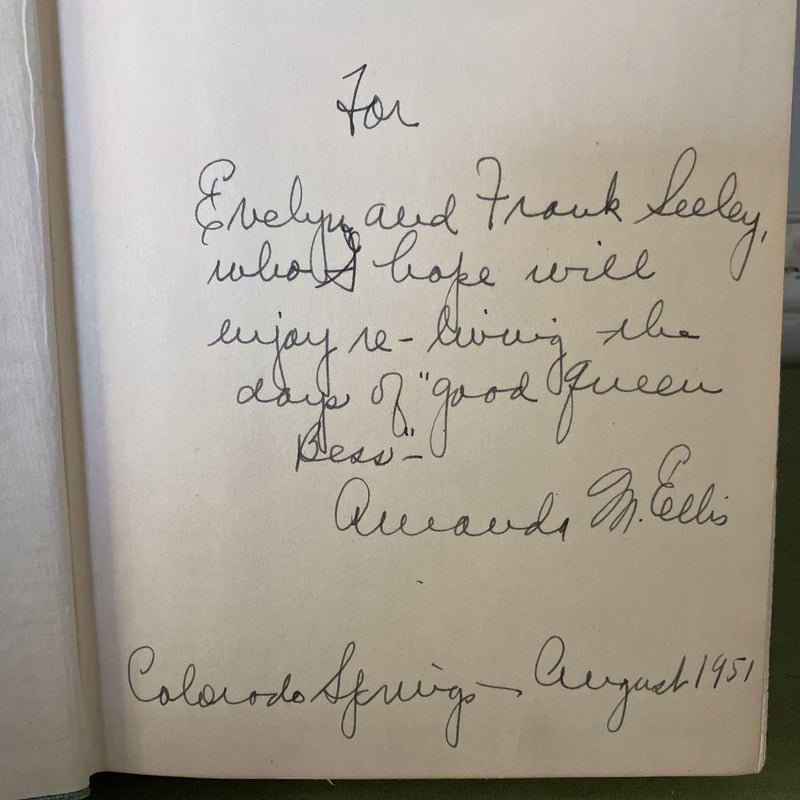 For
Evelyn and Frank Seeley,
who I hope will
enjoy re-living the
days of "good Queen
Bess"-
Amanda M. Ellis
Colorado Springs - August 1951